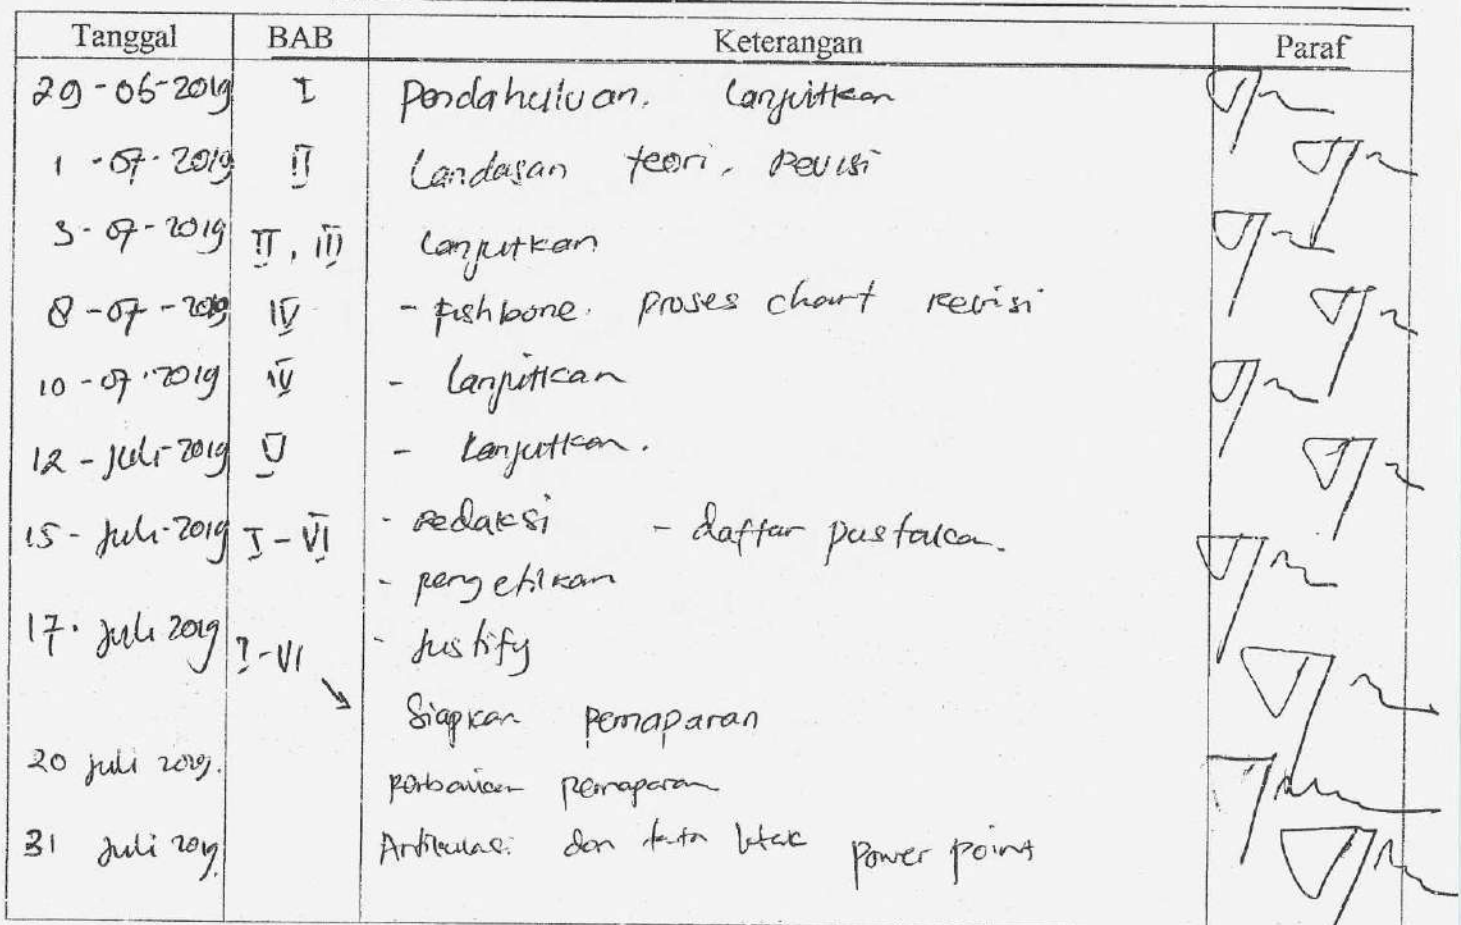 Tanggal BAB Keterangan Paraf
29-06-2019 I Pendahuluan. Lanjutkan
1-07-2019 II Landasan teori. Revisi
3-07-2019 II, III Lanjutkan
8-07-2019 IV - fishbone. proses chart revisi
10-07-2019 IV - Lanjutkan
12-Juli-2019 V - Lanjutkan.
15-Juli-2019 I-VI - redaksi - daftar pustaka.
- pengetikan
17. Juli 2019 I-VI - Justify
Siapkan pemaparan
20 Juli 2019. perbaikan pemaparan
31 Juli 2019 Artikulasi dan tata letak power point